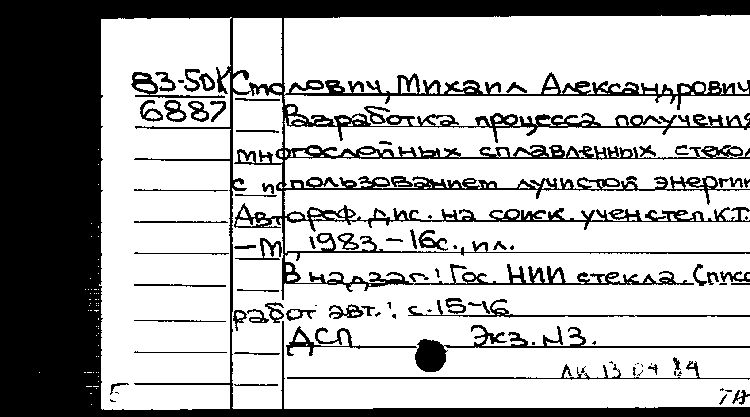 83-5ДК Столович, Михаил Александрович
6887 Разработка процесса получения
многослойных сплавленных стекол
с использованием лучистой энергии
Автореф. дис. на соиск. учен степ. к.т.
-М, 1983.-16с., ил.
В надзаг.: Гос. НИИ стекла. Списо
работ авт.: с.15-16
ДСП Экз. №3.
ЛК 13 04 84
5